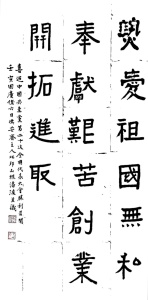 熱愛祖國無私
奉獻艱苦創業
開拓進取
喜迎中國共產黨第二十次全國代表大會勝利召開
壬寅國慶